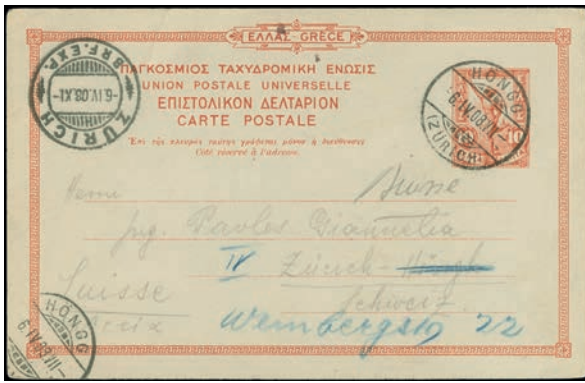 ΕΛΛΑΣ-GRECE
ΠΑΓΚΟΣΜΙΟΣ ΤΑΧΥΔΡΟΜΙΚΗ ΕΝΩΣΙΣ
UNION POSTALE UNIVERSELLE
ΕΠΙΣΤΟΛΙΚΟΝ ΔΕΛΤΑΡΙΟΝ
CARTE POSTALE
Ἐπὶ τῆς πλευρᾶς ταύτης γράφεται μόνον ἡ διεύθυνσις
Côté réservé à l'adresse.
ZÜRICH BRF.EXP.
-6.IV.08.XI-
HÖNGG (ZÜRICH)
10
Suisse
Herrn
Pavlos
IV Zürich-Höngg
Suisse
Schweiz
Weinbergstr 22
HÖNGG